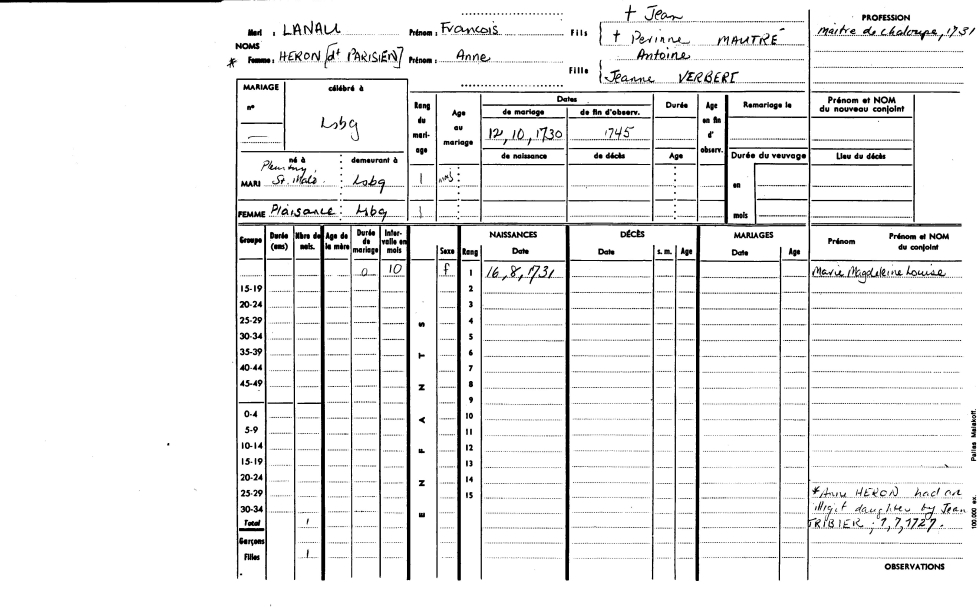 + Jean
PROFESSION
Mari : LANAU Prénom : Francois Fils + Perinne MAUTRÉ maitre de chaloupe, 1731
NOMS
* Femme : HERON [dt PARISIEN] Prénom : Anne Fille Antoine
Jeanne VERBERT
MARIAGE célébré à
n° Lsbg
Rang du mariage Age au mariage Dates Durée Age en fin d'observ. Remariage le Prénom et NOM du nouveau conjoint
de mariage de fin d'observ.
12, 10, 1730 1745
de naissance de décès Age Durée du veuvage Lieu du décès
né à demeurant à
MARI St. Malo Lsbg 1 en
FEMME Plaisance Lsbg 1 mois
Groupe Durée (ans) Nbre de nais. Age de la mère Durée de mariage Intervalle en mois ENFANTS Sexe Rang NAISSANCES Date DÉCÈS Date s. m. Age MARIAGES Date Age Prénom Prénom et NOM du conjoint
0 10 f 1 16, 8, 1731 Marie Magdeleine Louise
15-19 2
20-24 3
25-29 4
30-34 5
35-39 6
40-44 7
45-49 8
9
0-4 10
5-9 11
10-14 12
15-19 13
20-24 14
25-29 15 * Anne HERON had an
30-34 illegit daughter by Jean
Total 1 TRIBIER, 7, 7, 1727.
Garçons
Filles 1
OBSERVATIONS
100 000 ex. Pailles Malakoff.